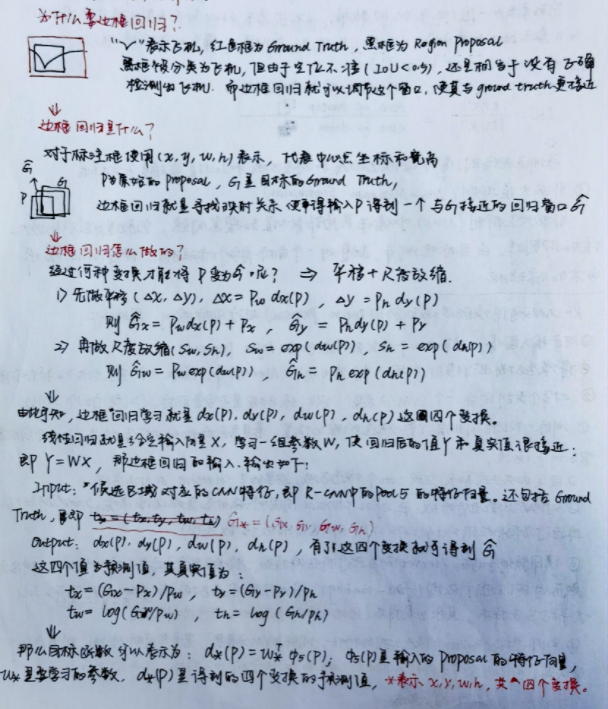 为什么要边框回归?
"✓"表示飞机, 红色框为Ground Truth, 黑框为Region Proposal
黑框被分类为飞机, 但由于定位不准(IoU<0.5), 还是相当于没有正确
检测出飞机. 即边框回归就可以调节这个窗口, 使其与ground truth更接近
↓
边框回归是什么?
对于标注框使用(x, y, w, h)表示, 代表中心点坐标和宽高
P为原始的Proposal, G是目标的Ground Truth,
边框回归就是寻找映射关系, 使得输入P得到一个与G接近的回归窗口Ĝ
Ĝ
P
G
↓
边框回归怎么做的?
通过何种变换才能将P变为Ĝ呢? ⇒ 平移+尺度放缩.
1) 先做平移(Δx, Δy), Δx = Pw dx(P), Δy = Ph dy(P)
则 Ĝx = Pwdx(P) + Px, Ĝy = Phdy(P) + Py
2) 再做尺度放缩(Sw, Sh), Sw = exp(dw(P)), Sh = exp(dh(P))
则 Ĝw = Pw exp(dw(P)), Ĝh = Ph exp(dh(P))
↓
由此可知, 边框回归学习就是dx(P), dy(P), dw(P), dh(P)这四个变换.
线性回归就是给定输入向量X, 学习一组参数W, 使回归后的值Y和真实值很接近:
即Y=WX, 那边框回归的输入.输出如下:
Input: 候选区域对应的CNN特征, 即R-CNN中的Pool5的特征向量. 还包括Ground
Truth, 即 t* = (tx, ty, tw, th) G* = (Gx, Gy, Gw, Gh)
Output: dx(P), dy(P), dw(P), dh(P), 有了这四个变换就可得到Ĝ
这四个值为预测值, 其真实值为:
tx = (Gx-Px)/Pw, ty = (Gy-Py)/Ph
tw = log(Gw/Pw), th = log(Gh/Ph)
↓
那么目标函数可以表示为: d*(P) = W*ᵀ φ5(P), φ5(P)是输入的Proposal的特征向量,
W*是要学习的参数, d*(P)是得到的四个变换的预测值, *表示x, y, w, h, 共四个变换。